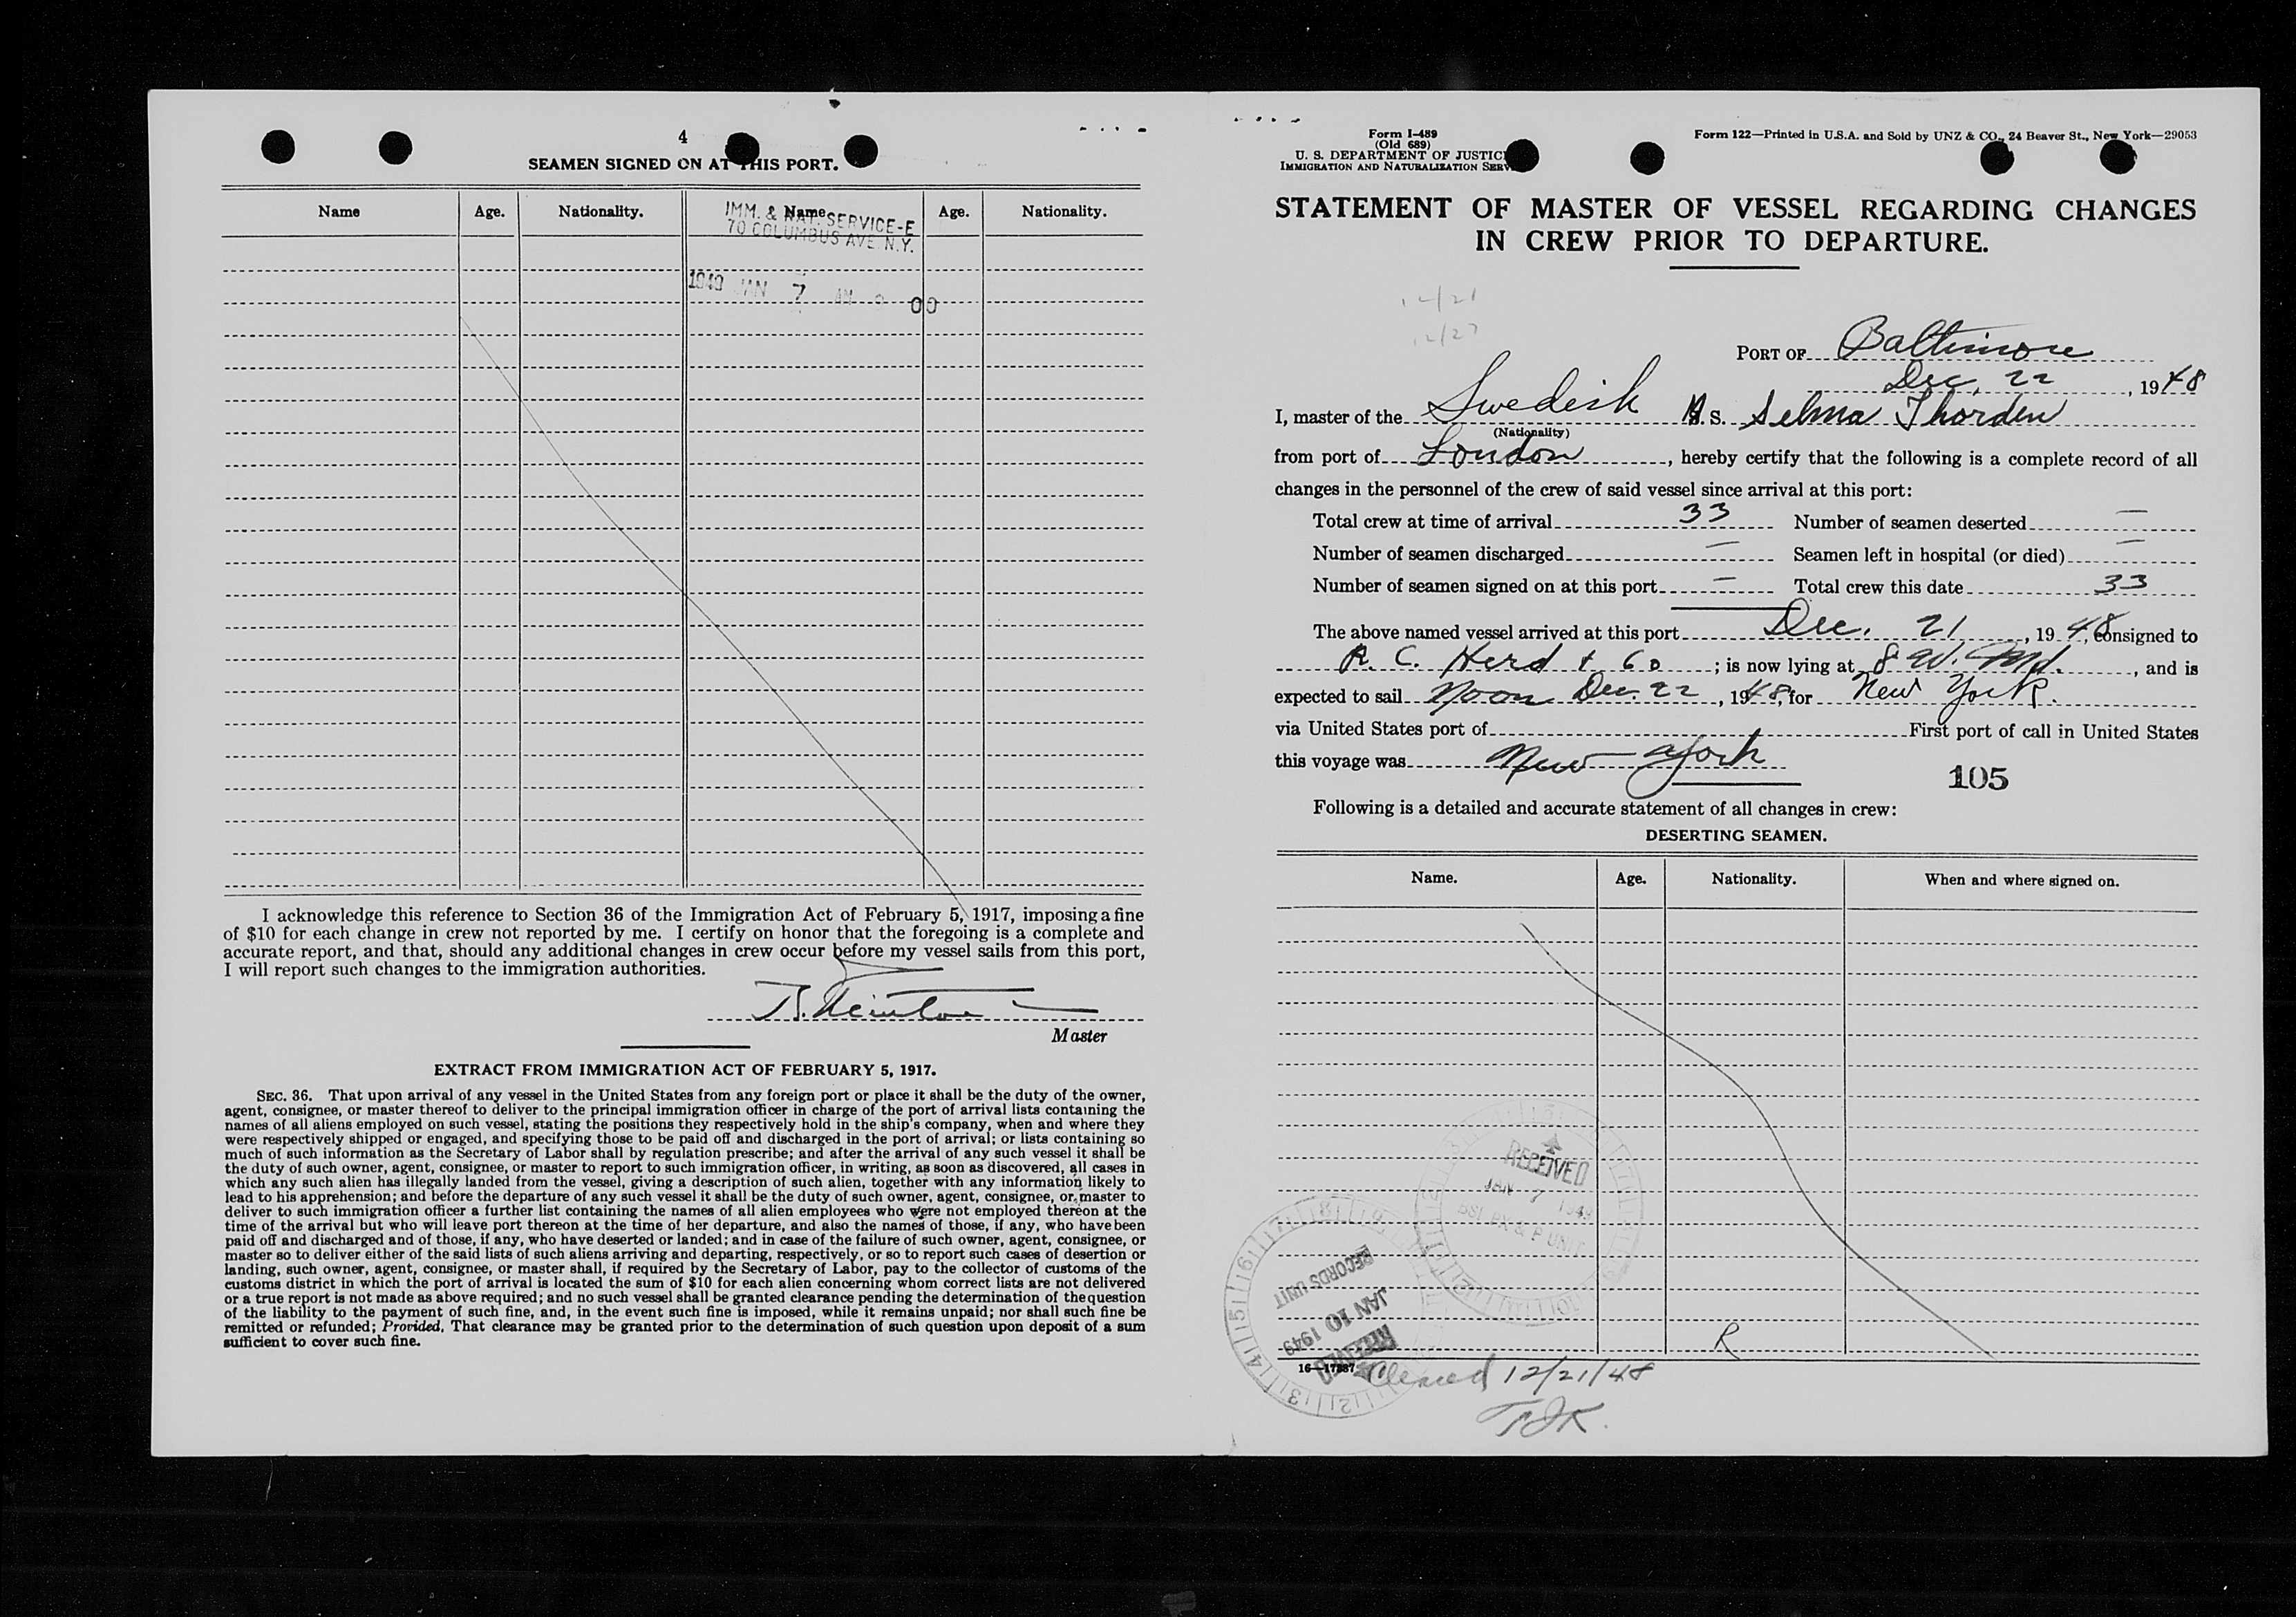 4
SEAMEN SIGNED ON AT THIS PORT.
Name Age. Nationality. Name Age. Nationality.
IMM. & NAT. SERVICE-E
70 COLUMBUS AVE. N.Y.
1949 JAN 7 AM 00
I acknowledge this reference to Section 36 of the Immigration Act of February 5, 1917, imposing a fine
of $10 for each change in crew not reported by me. I certify on honor that the foregoing is a complete and
accurate report, and that, should any additional changes in crew occur before my vessel sails from this port,
I will report such changes to the immigration authorities.
Master
EXTRACT FROM IMMIGRATION ACT OF FEBRUARY 5, 1917.
SEC. 36. That upon arrival of any vessel in the United States from any foreign port or place it shall be the duty of the owner,
agent, consignee, or master thereof to deliver to the principal immigration officer in charge of the port of arrival lists containing the
names of all aliens employed on such vessel, stating the positions they respectively hold in the ship's company, when and where they
were respectively shipped or engaged, and specifying those to be paid off and discharged in the port of arrival; or lists containing so
much of such information as the Secretary of Labor shall by regulation prescribe; and after the arrival of any such vessel it shall be
the duty of such owner, agent, consignee, or master to report to such immigration officer, in writing, as soon as discovered, all cases in
which any such alien has illegally landed from the vessel, giving a description of such alien, together with any information likely to
lead to his apprehension; and before the departure of any such vessel it shall be the duty of such owner, agent, consignee, or master to
deliver to such immigration officer a further list containing the names of all alien employees who were not employed thereon at the
time of the arrival but who will leave port thereon at the time of her departure, and also the names of those, if any, who have been
paid off and discharged and of those, if any, who have deserted or landed; and in case of the failure of such owner, agent, consignee, or
master so to deliver either of the said lists of such aliens arriving and departing, respectively, or so to report such cases of desertion or
landing, such owner, agent, consignee, or master shall, if required by the Secretary of Labor, pay to the collector of customs of the
customs district in which the port of arrival is located the sum of $10 for each alien concerning whom correct lists are not delivered
or a true report is not made as above required; and no such vessel shall be granted clearance pending the determination of the question
of the liability to the payment of such fine, and, in the event such fine is imposed, while it remains unpaid; nor shall such fine be
remitted or refunded; Provided, That clearance may be granted prior to the determination of such question upon deposit of a sum
sufficient to cover such fine.
Form I-489
(Old 689)
U. S. DEPARTMENT OF JUSTIC
IMMIGRATION AND NATURALIZATION SERV
Form 122—Printed in U.S.A. and Sold by UNZ & CO., 24 Beaver St., New York—29053
STATEMENT OF MASTER OF VESSEL REGARDING CHANGES
IN CREW PRIOR TO DEPARTURE.
12/21
12/27
PORT OF Baltimore
Dec. 22, 1948
I, master of the Swedish M. S. Selma Thorden
(Nationality)
from port of London, hereby certify that the following is a complete record of all
changes in the personnel of the crew of said vessel since arrival at this port:
Total crew at time of arrival 33 Number of seamen deserted —
Number of seamen discharged — Seamen left in hospital (or died) —
Number of seamen signed on at this port — Total crew this date 33
The above named vessel arrived at this port Dec. 21, 1948, consigned to
R. C. Herd + Co; is now lying at 8 W. Md., and is
expected to sail Noon Dec. 22, 1948, for New York.
via United States port of First port of call in United States
this voyage was New York
105
Following is a detailed and accurate statement of all changes in crew:
DESERTING SEAMEN.
Name. Age. Nationality. When and where signed on.
RECEIVED
JAN 7 1949
RECORDS UNIT
JAN 10 1949
RECEIVED
R
16—17887
Cleared 12/21/48
TJK.